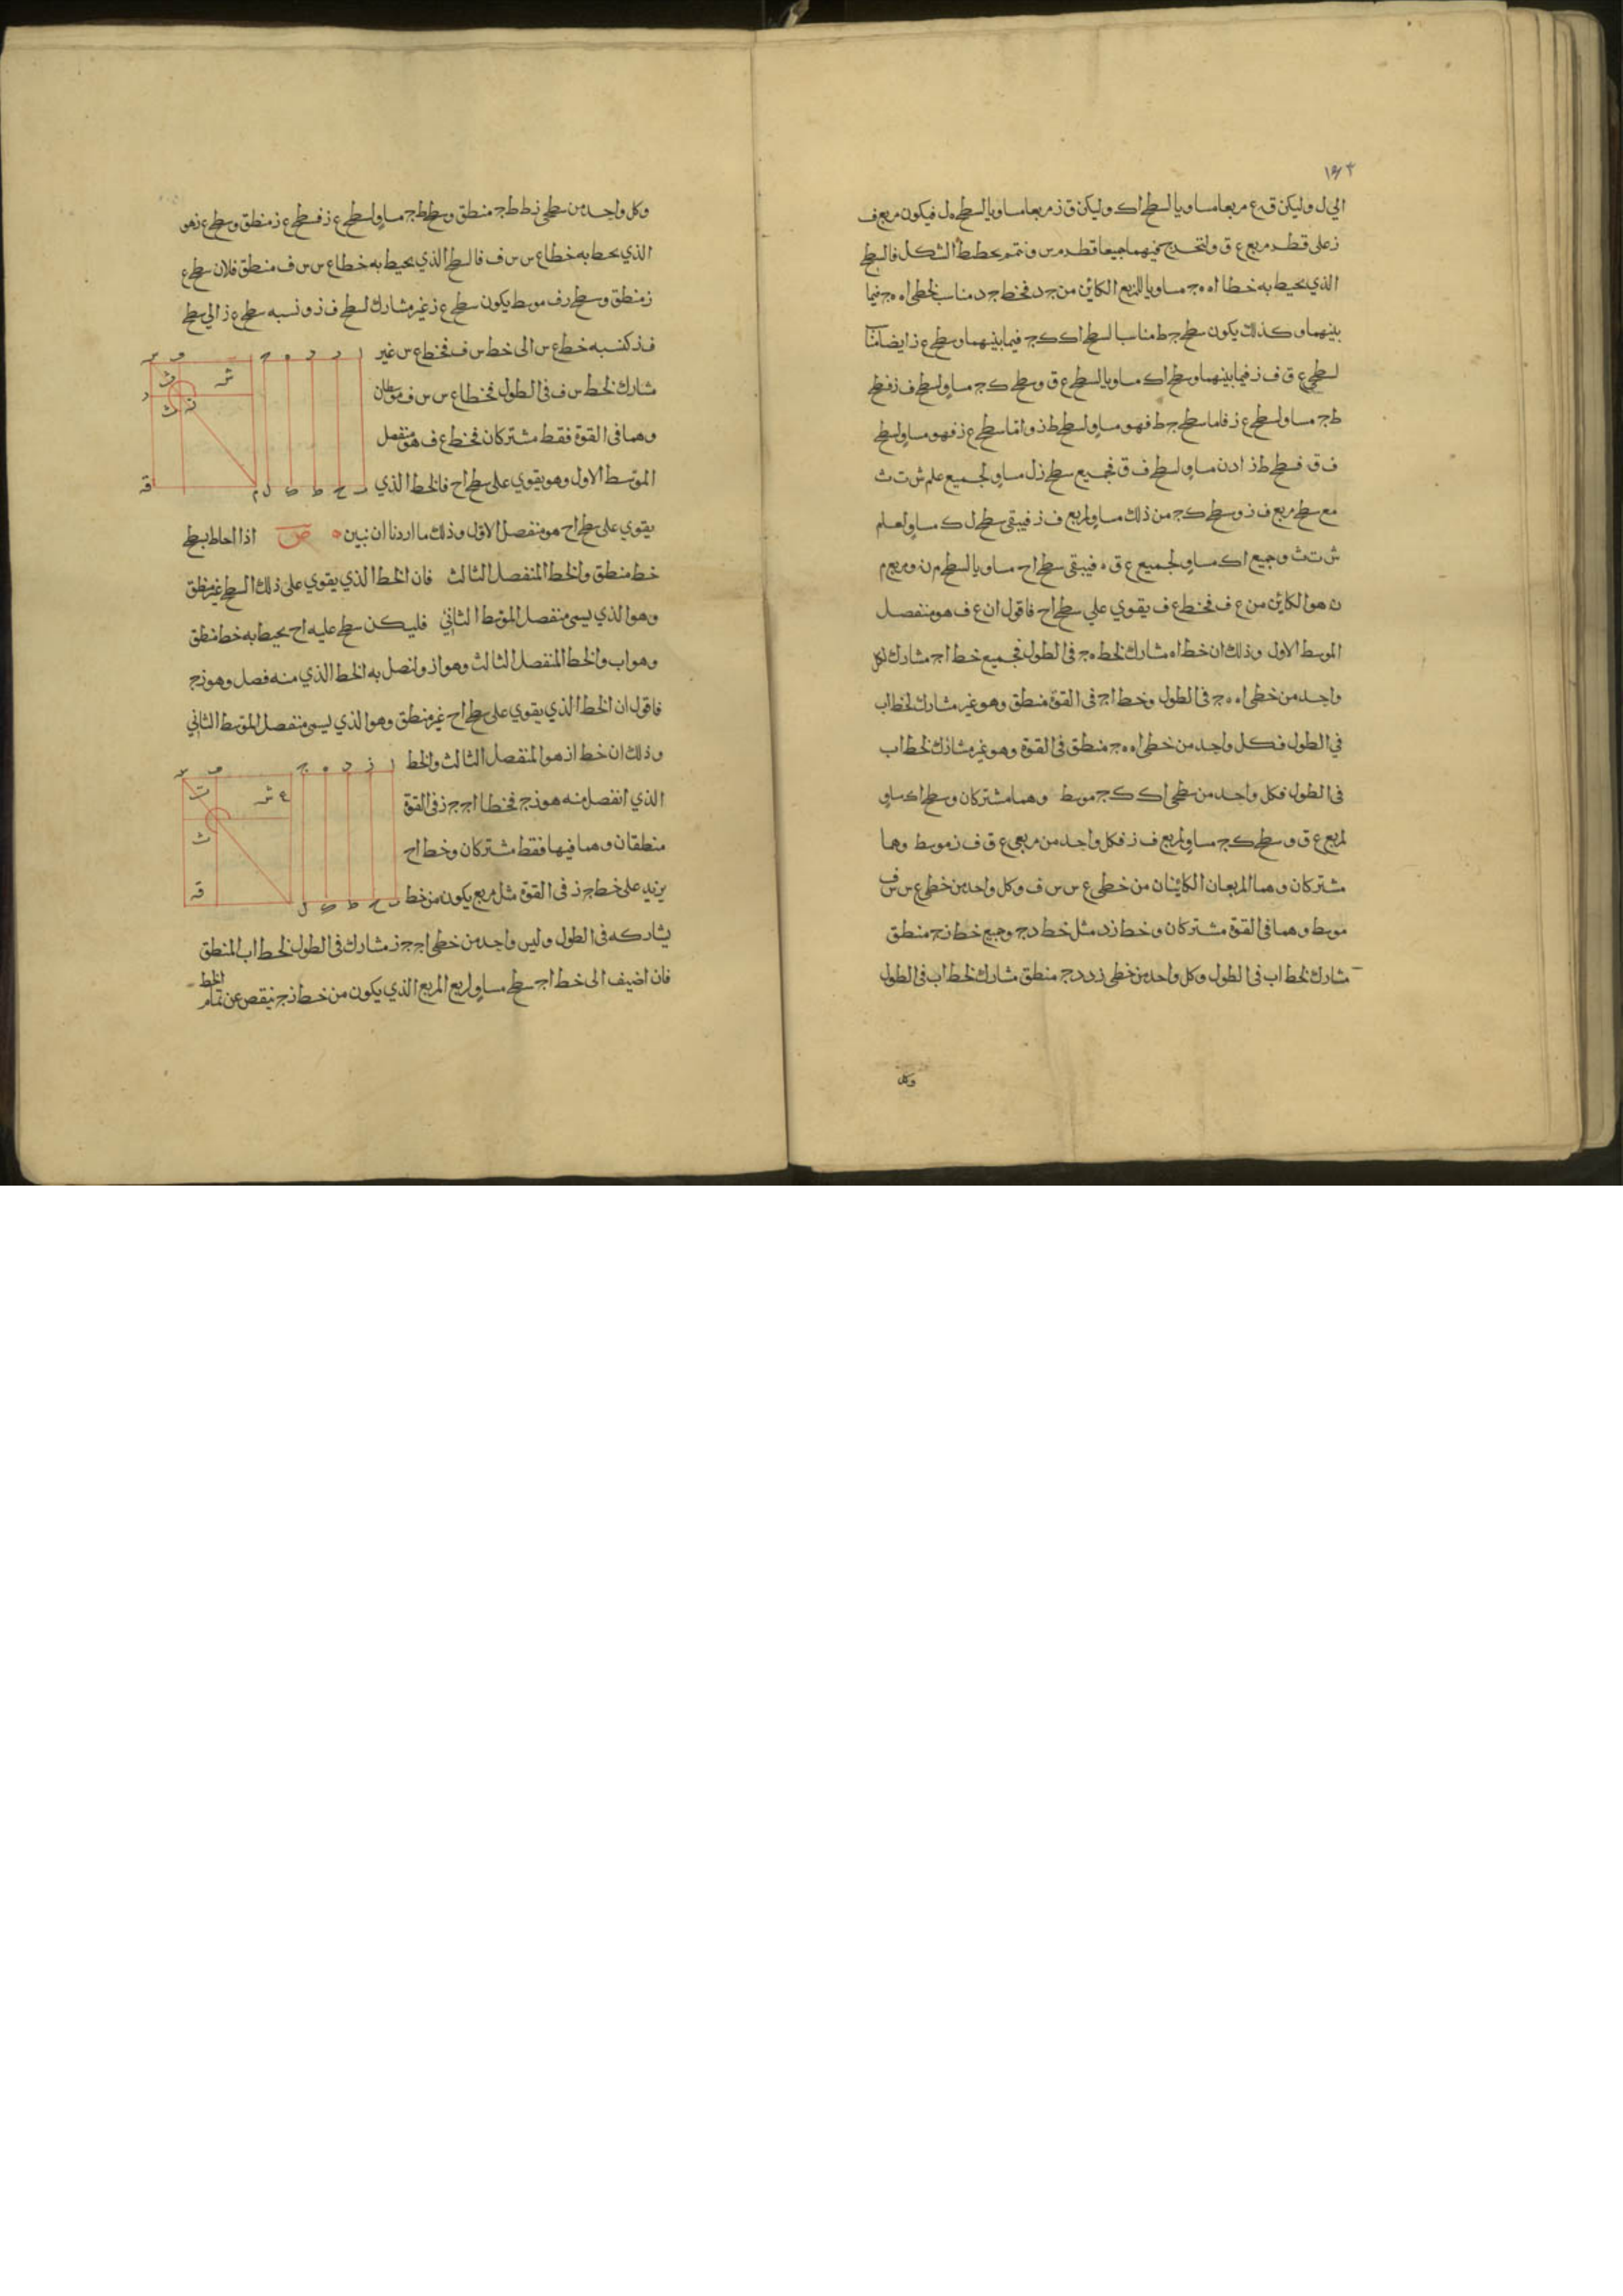 ١٤٣
الى ل وليكن ق ع مربعا مساويا لسطح اك وليكن ق ز مربعا مساويا لسطح ه ل فيكون مربع ف
ز على قطر مربع ع ق ولنخرج جميعا قطر م س ونتمم بخطط الشكل فالسطح
الذي يحيط به خطا اه ه ج مساويا للمربع الكائن من ج د فخط ج د مناسب لخطي اه ه ج فيما
بينهما وكذلك يكون سطح ج ط مناسبا لسطح اك ك ج فيما بينهما وسطح ع ز ايضا مناسبا
لسطحي ع ق ف ز فيما بينهما وسطح اك مساويا لسطح ع ق وسطح ك ج مساو لسطح ف ز فسطح
ط ج مساو لسطح ع ز فاما سطح ج ط فهو مساو لسطح ط ذ واما سطح ع ز فهو مساو لسطح
ف ق فسطح ط ذ اذن مساو لسطح ف ق فجميع سطح ز ل مساو لجميع علم ش ت ث
مع سطح مربع ف ز وسطح ك ج من ذلك مساو لمربع ف ز فيبقى سطح ل ك مساو لعلم
ش ت ث وجميع اك مساو لجميع ع ق ه فيبقى سطح اح مساويا لسطح م ن ومربع م
ن هو الكائن من ع ف فخط ع ف يقوي على سطح اح فاقول ان ع ف هو منفصل
الموسط الاول وذلك ان خط اه مشارك لخط ه ج فى الطول فجميع خط اج مشارك لكل
واحد من خطي اه ه ج فى الطول وخط اج فى القوة منطق وهو غير مشارك لخط اب
في الطول فكل واحد من خطي اه ه ج منطق فى القوة وهو غير مشارك لخط اب
فى الطول فكل واحد من سطحي اك ك ج موسط وهما مشتركان وسطح اك مساو
لمربع ع ق وسطح ك ج مساو لمربع ف ز فكل واحد من مربعي ع ق ف ز موسط وهما
مشتركان وهما المربعان الكائنان من خطي ع س س ف وكل واحد من خطي ع س س ف
موسط وهما فى القوة مشتركان وخط ز د مثل خط د ج وجميع خط ز ج منطق
مشارك لخط اب فى الطول وكل واحد من خطي ز د د ج منطق مشارك لخط اب فى الطول
وكل
وكل واحد من سطحي ز ط ط ج منطق وسطح ط ج مساو لسطح ع ز فسطح ع ز منطق وسطح ع ز هو
الذي يحيط به خطا ع س س ف فالسطح الذي يحيط به خطا ع س س ف منطق فلان سطح ع
ز منطق وسطح ز ف موسط يكون سطح ع ز غير مشارك لسطح ف ز ونسبه سطح ع ز الى سطح
ف ز كنسبه خط ع س الى خط س ف فخط ع س غير
مشارك لخط س ف فى الطول فخطا ع س س ف موسطان
وهما فى القوة فقط مشتركان فخط ع ف هو منفصل
الموسط الاول وهو يقوي على سطح اح فالخط الذي
يقوي على سطح اح هو منفصل الاول وذلك ما اردنا ان نبين ص اذا احاط بسطح
خط منطق والخط المنفصل الثالث فان الخط الذي يقوي على ذلك السطح غير منطق
وهو الذي يسمى منفصل الموسط الثاني فليكن سطح عليه اح يحيط به خط منطق
وهو اب والخط المنفصل الثالث وهو از ولنصل به الخط الذي منه فصل وهو زج
فاقول ان الخط الذي يقوي على سطح اح غير منطق وهو الذي يسمى منفصل الموسط الثاني
وذلك ان خط از هو المنفصل الثالث والخط
الذي انفصل منه هو زج فخطا اج ج ز فى القوة
منطقان وهما فيها فقط مشتركان وخط اج
يزيد على خط ج ز فى القوة مثل مربع يكون من خط
يشاركه فى الطول وليس واحد من خطي اج ج ز مشارك فى الطول لخط اب المنطق
فان اضيف الى خط اج سطح مساو لربع المربع الذي يكون من خط زج ينقص عن تمام الخط